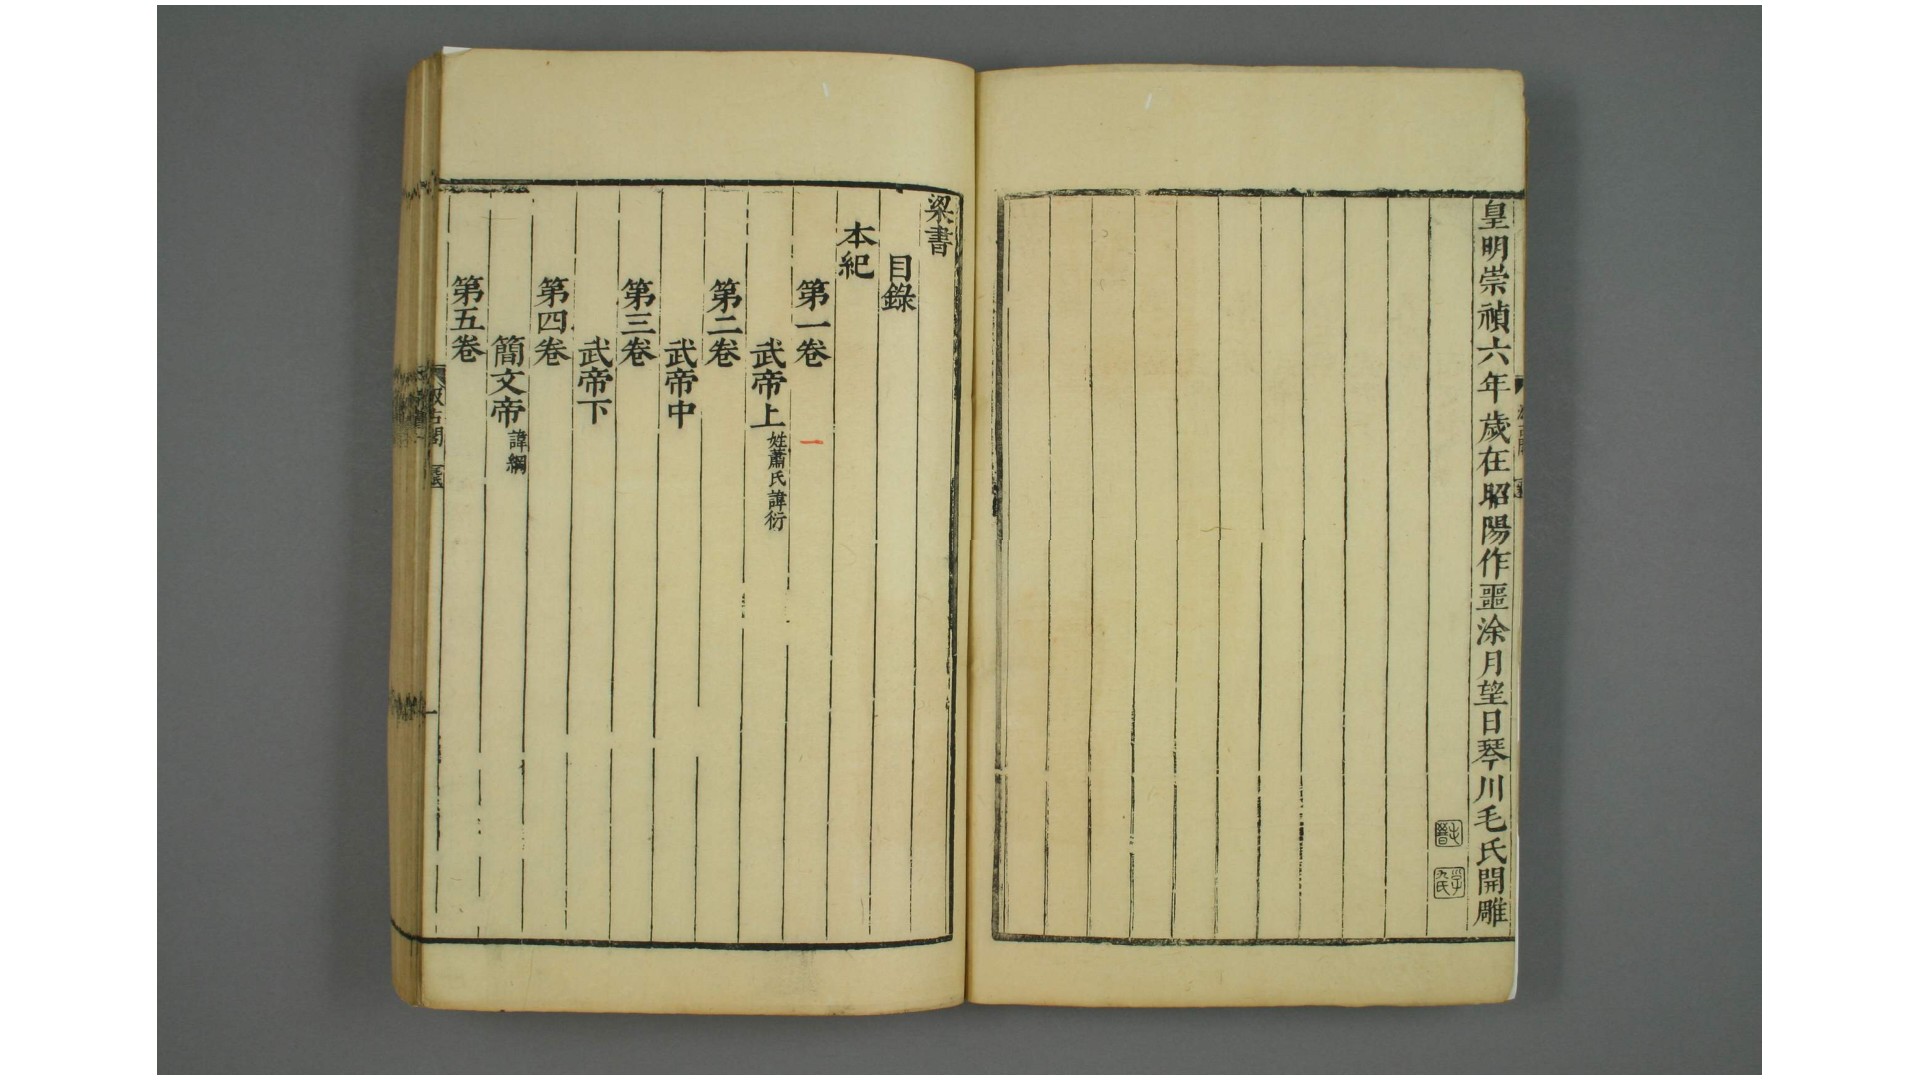 皇明崇禎六年歲在昭陽作噩涂月望日琴川毛氏開雕
梁書
目錄
本紀
第一卷
一
武帝上 姓蕭氏諱衍
第二卷
武帝中
第三卷
武帝下
第四卷
簡文帝 諱綱
第五卷
汲古閣